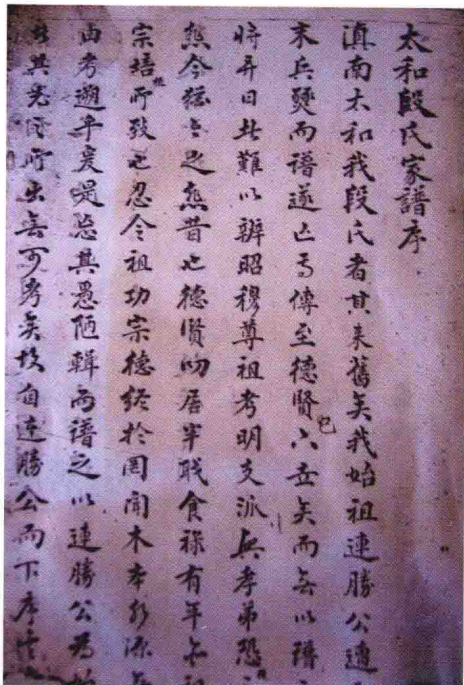 太和段氏家譜序
滇南太和我段氏者其来舊矣我始祖連勝公連
末兵燹而譜遂亡焉傳至德賢已六世矣而無以譜
将弄日此難以辨昭穆尊祖考明支派興孝弟恐
然今猶昔也德賢幼居半职食禄有年無
宗培所致也忍令祖功宗德終於罔闻木本水源
由考遡乎爰嗘忘其愚陋輯而譜之以連勝公為始
其先固所出無可考矣故自連勝公而下序